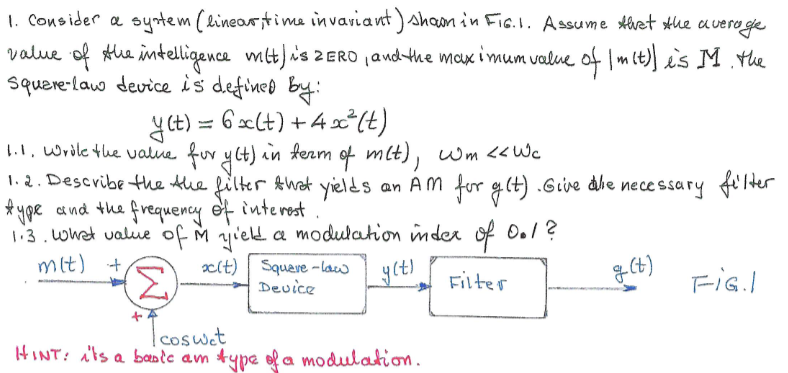 1. Consider a system (linear, time invariant) shown in FIG.1. Assume that the average
value of the intelligence m(t) is ZERO, and the maximum value of |m(t)| is M. The
Square-law device is defined by:
y(t) = 6x(t) + 4x²(t)
1.1. Write the value for y(t) in term of m(t), ωm << ωc
1.2. Describe the the filter that yields an AM for g(t). Give the necessary filter
type and the frequency of interest.
1.3. What value of M yield a modulation index of 0.1?
m(t) + Σ x(t) Square-law Device y(t) Filter g(t) FIG.1
+
cosωct
HINT: it's a basic am type of a modulation.